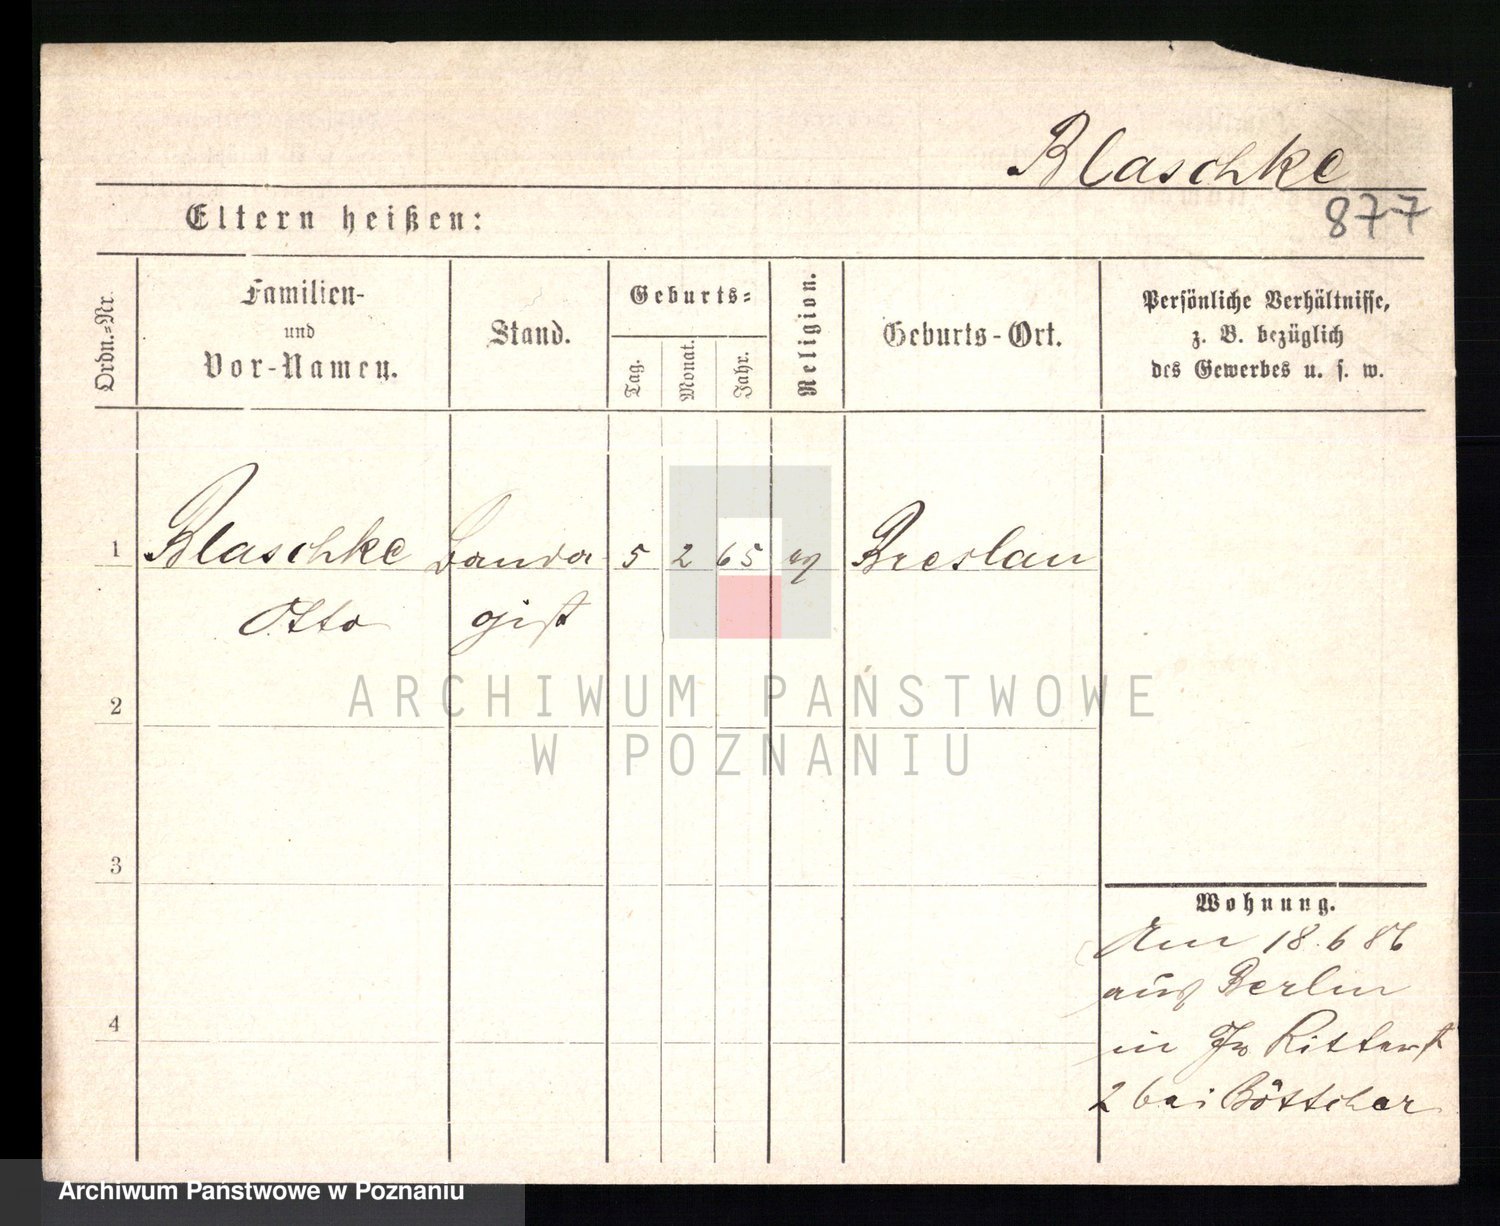 Blaschke
877
Eltern heißen:
Ordn.-Nr.
Familien-
und
Vor-Namen.
Stand.
Geburts-
Tag.
Monat.
Jahr.
Religion.
Geburts-Ort.
Persönliche Verhältnisse,
z. B. bezüglich
des Gewerbes u. s. w.
1 Blaschke Banda 5 2 65 ev Breslau
Otto gist
2
ARCHIWUM PAŃSTWOWE
W POZNANIU
3
Wohnung.
Am 18.6 86
aus Berlin
4
in Ritterst
2 bei Böttcher
Archiwum Państwowe w Poznaniu